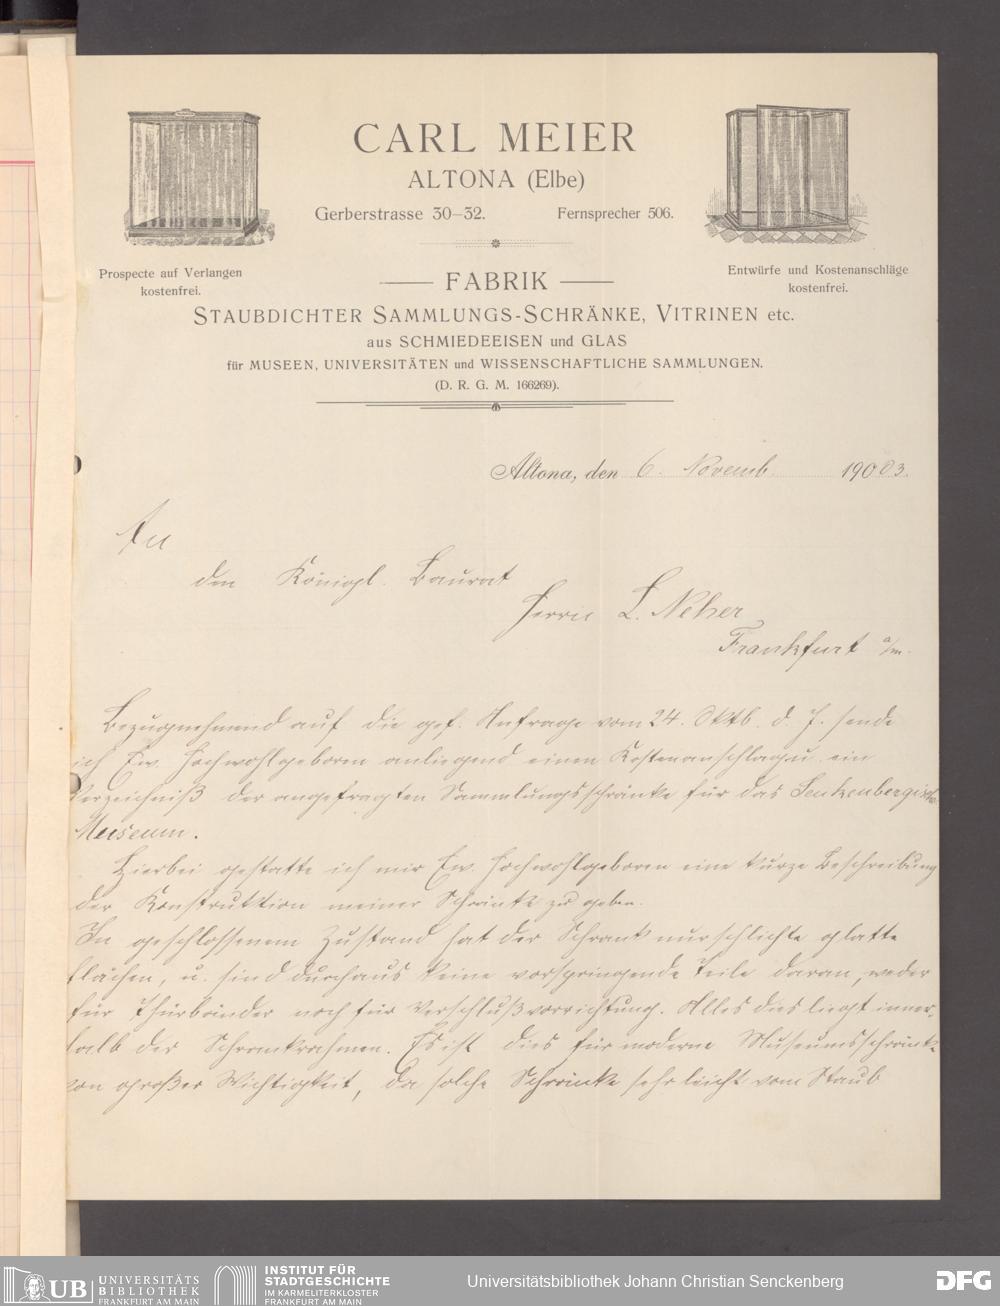 CARL MEIER
ALTONA (Elbe)
Gerberstrasse 30–32. Fernsprecher 506.
Prospecte auf Verlangen
kostenfrei.
Entwürfe und Kostenanschläge
kostenfrei.
FABRIK
STAUBDICHTER SAMMLUNGS-SCHRÄNKE, VITRINEN etc.
aus SCHMIEDEEISEN und GLAS
für MUSEEN, UNIVERSITÄTEN und WISSENSCHAFTLICHE SAMMLUNGEN.
(D. R. G. M. 166269).
Altona, den 6. Novemb. 190 03.
An
den Königl. Baurat
Herrn L. Neher
Frankfurt a/m.
Bezugnehmend auf die gef. Anfrage vom 24. Oktb. d. J. sende
ich Ew. Hochwohlgeboren anliegend einen Kostenanschlag u. ein
Verzeichniß der angefragten Sammlungsschränke für das Senkenbergische
Museum.
Hierbei gestatte ich mir Ew. Hochwohlgeboren eine kurze Beschreibung
der Konstruktion meiner Schränke zu geben.
In geschlossenem Zustand hat der Schrank nur schlichte glatte
Flächen, u. sind durchaus keine vorspringende Teile daran, weder
für Thürbänder noch für Verschlußvorrichtung. Alles dies liegt inner-
halb der Schrankrahmen. Es ist dies für moderne Museumsschränke
von großer Wichtigkeit, da solche Schränke sehr leicht vom Staub
UB UNIVERSITÄTS
BIBLIOTHEK
FRANKFURT AM MAIN
INSTITUT FÜR
STADTGESCHICHTE
IM KARMELITERKLOSTER
FRANKFURT AM MAIN
Universitätsbibliothek Johann Christian Senckenberg
DFG